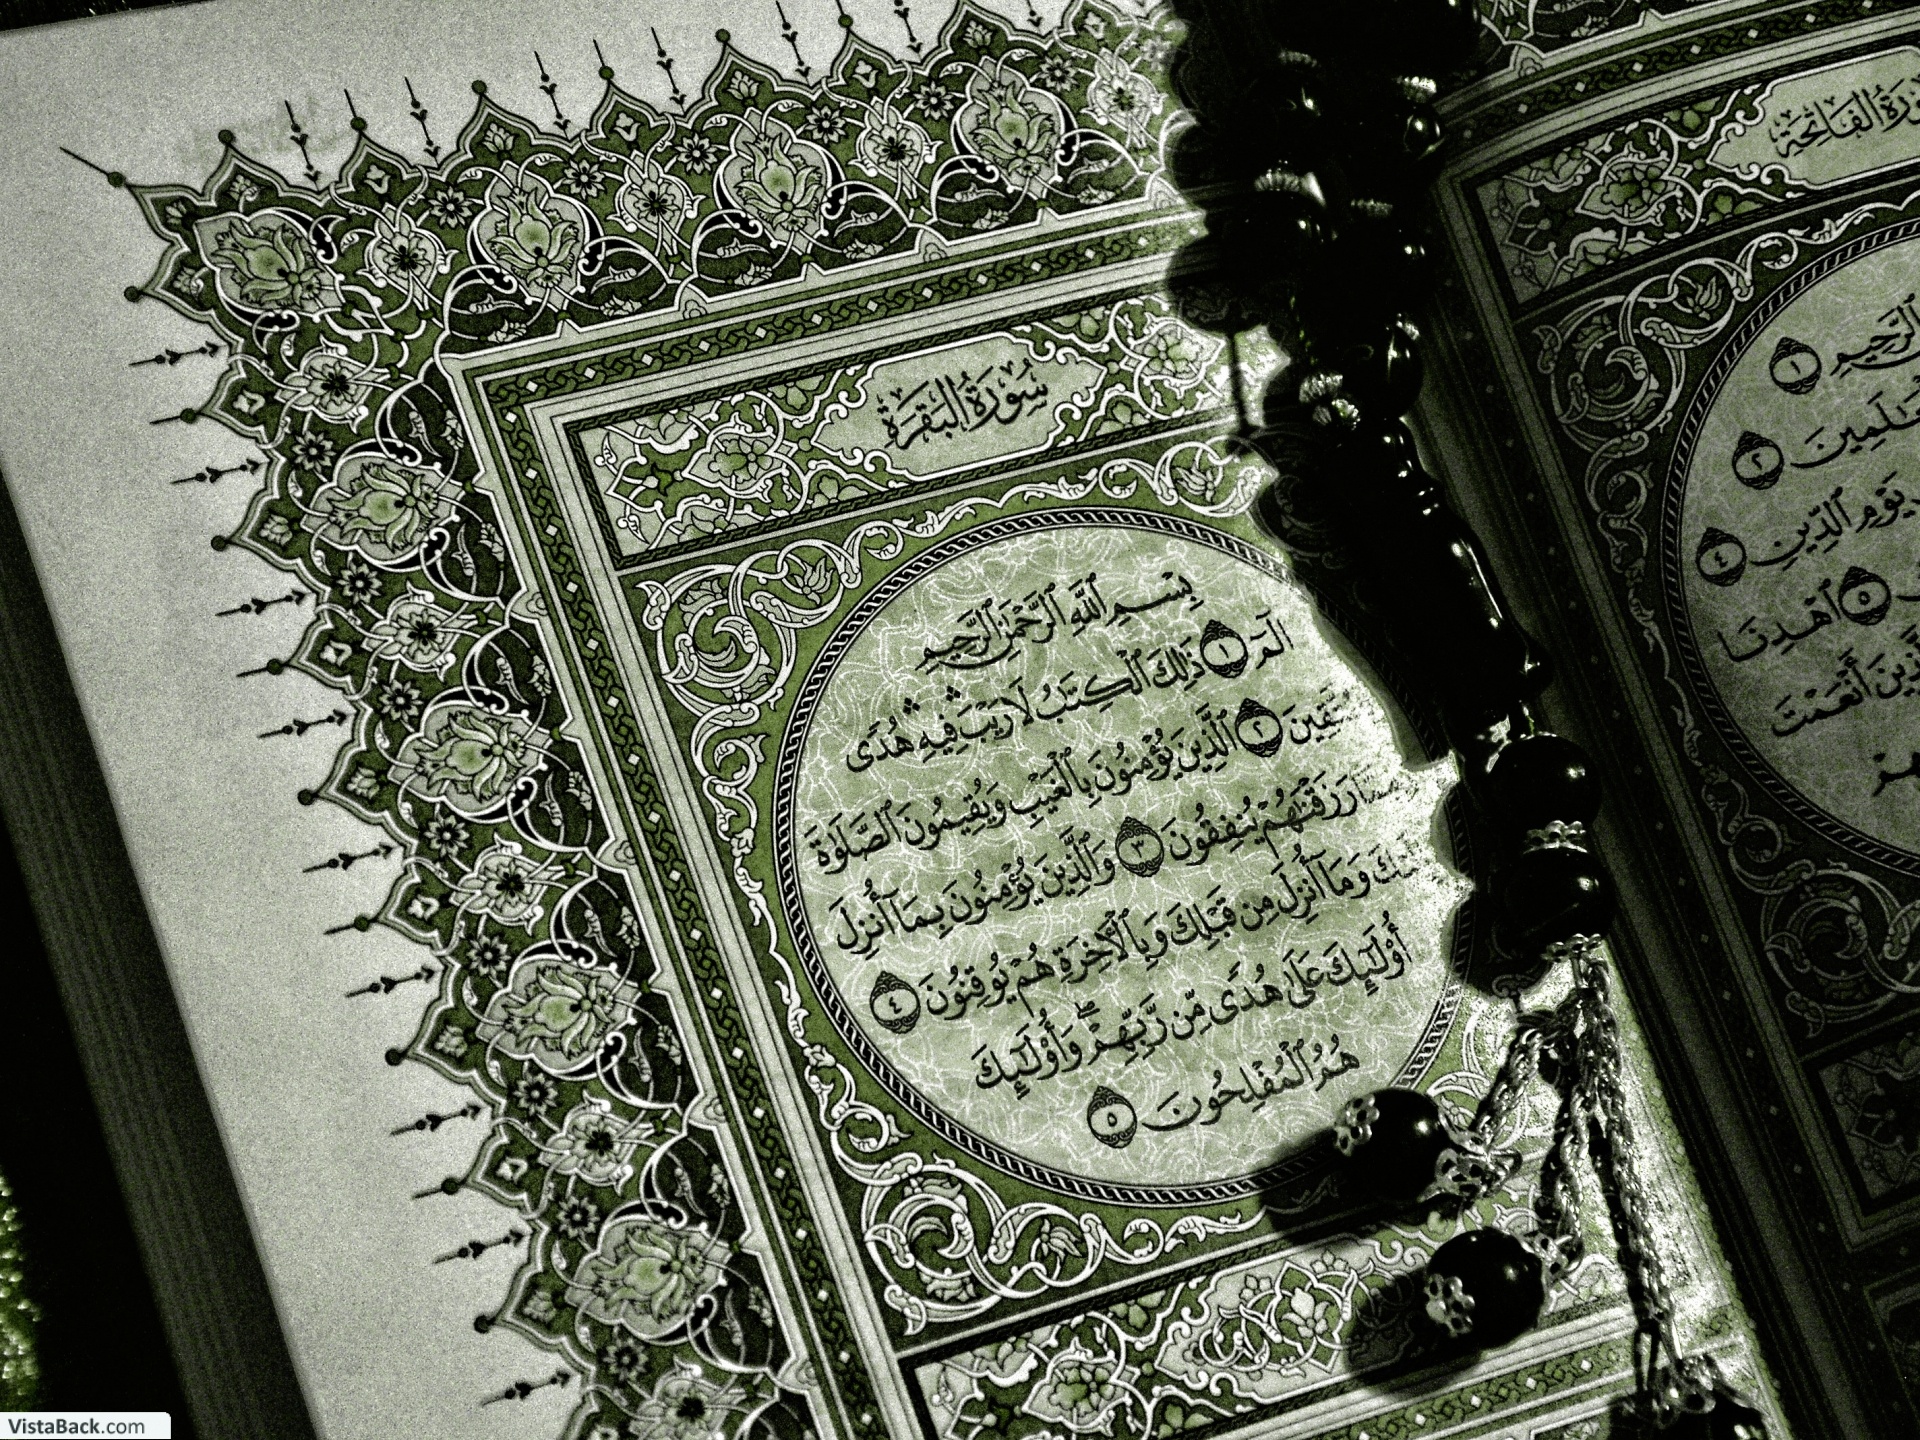 سُورَةُ الفَاتِحَةِ
ٱلرَّحِيمِ ١
ٱلۡعَٰلَمِينَ ٢
يَوۡمِ ٱلدِّينِ ٤
٥ ٱهۡدِنَا
أَنۡعَمۡتَ
سُورَةُ البَقَرَةِ
بِسۡمِ ٱللَّهِ ٱلرَّحۡمَٰنِ ٱلرَّحِيمِ
الٓمٓ ١ ذَٰلِكَ ٱلۡكِتَٰبُ لَا رَيۡبَۛ فِيهِۛ هُدٗى
٢ ٱلَّذِينَ يُؤۡمِنُونَ بِٱلۡغَيۡبِ وَيُقِيمُونَ ٱلصَّلَوٰةَ
رَزَقۡنَٰهُمۡ يُنفِقُونَ ٣ وَٱلَّذِينَ يُؤۡمِنُونَ بِمَآ أُنزِلَ
وَمَآ أُنزِلَ مِن قَبۡلِكَ وَبِٱلۡأٓخِرَةِ هُمۡ يُوقِنُونَ ٤
أُوْلَٰٓئِكَ عَلَىٰ هُدٗى مِّن رَّبِّهِمۡۖ وَأُوْلَٰٓئِكَ
هُمُ ٱلۡمُفۡلِحُونَ ٥
VistaBack.com